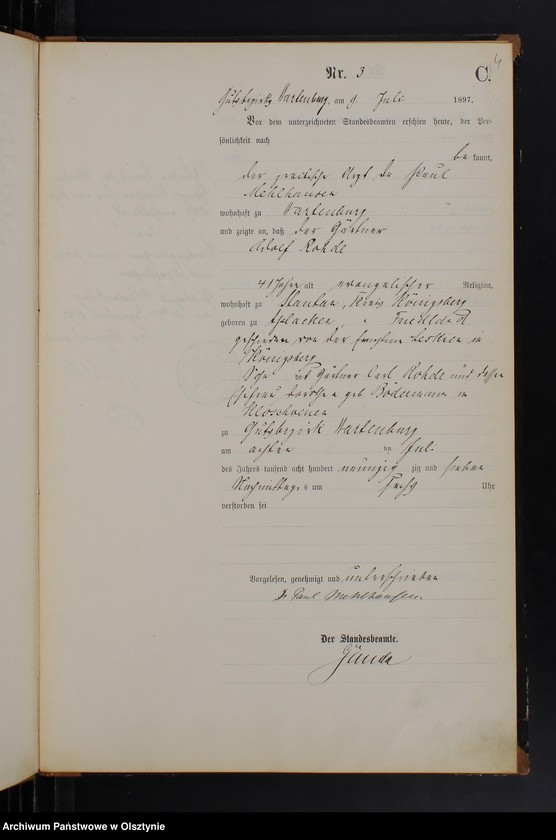 4
Nr. 3 C.
Gutsbezirk Wartenburg, am 9. Juli 1897.
Vor dem unterzeichneten Standesbeamten erschien heute, der Per-
sönlichkeit nach
be kannt,
der praktische Arzt Dr Paul
Mehlhausen
wohnhaft zu Wartenburg
und zeigte an, daß der Gärtner
Adolf Rohde
41 Jahre alt evangelischer Religion,
wohnhaft zu Kreis Königsberg
geboren zu Friedland
geschieden von der in
Königsberg
Sohn des Gärtner Carl Rohde und dessen
Ehefrau geb Bodemann in
Kloschenen
zu Gutsbezirk Wartenburg
am achten ten Juli
des Jahres tausend acht hundert neunzig zig und sieben
Nachmittags um sechs Uhr
verstorben sei
Vorgelesen, genehmigt und unterschrieben
Dr Paul Mehlhausen.
Der Standesbeamte.
Archiwum Państwowe w Olsztynie